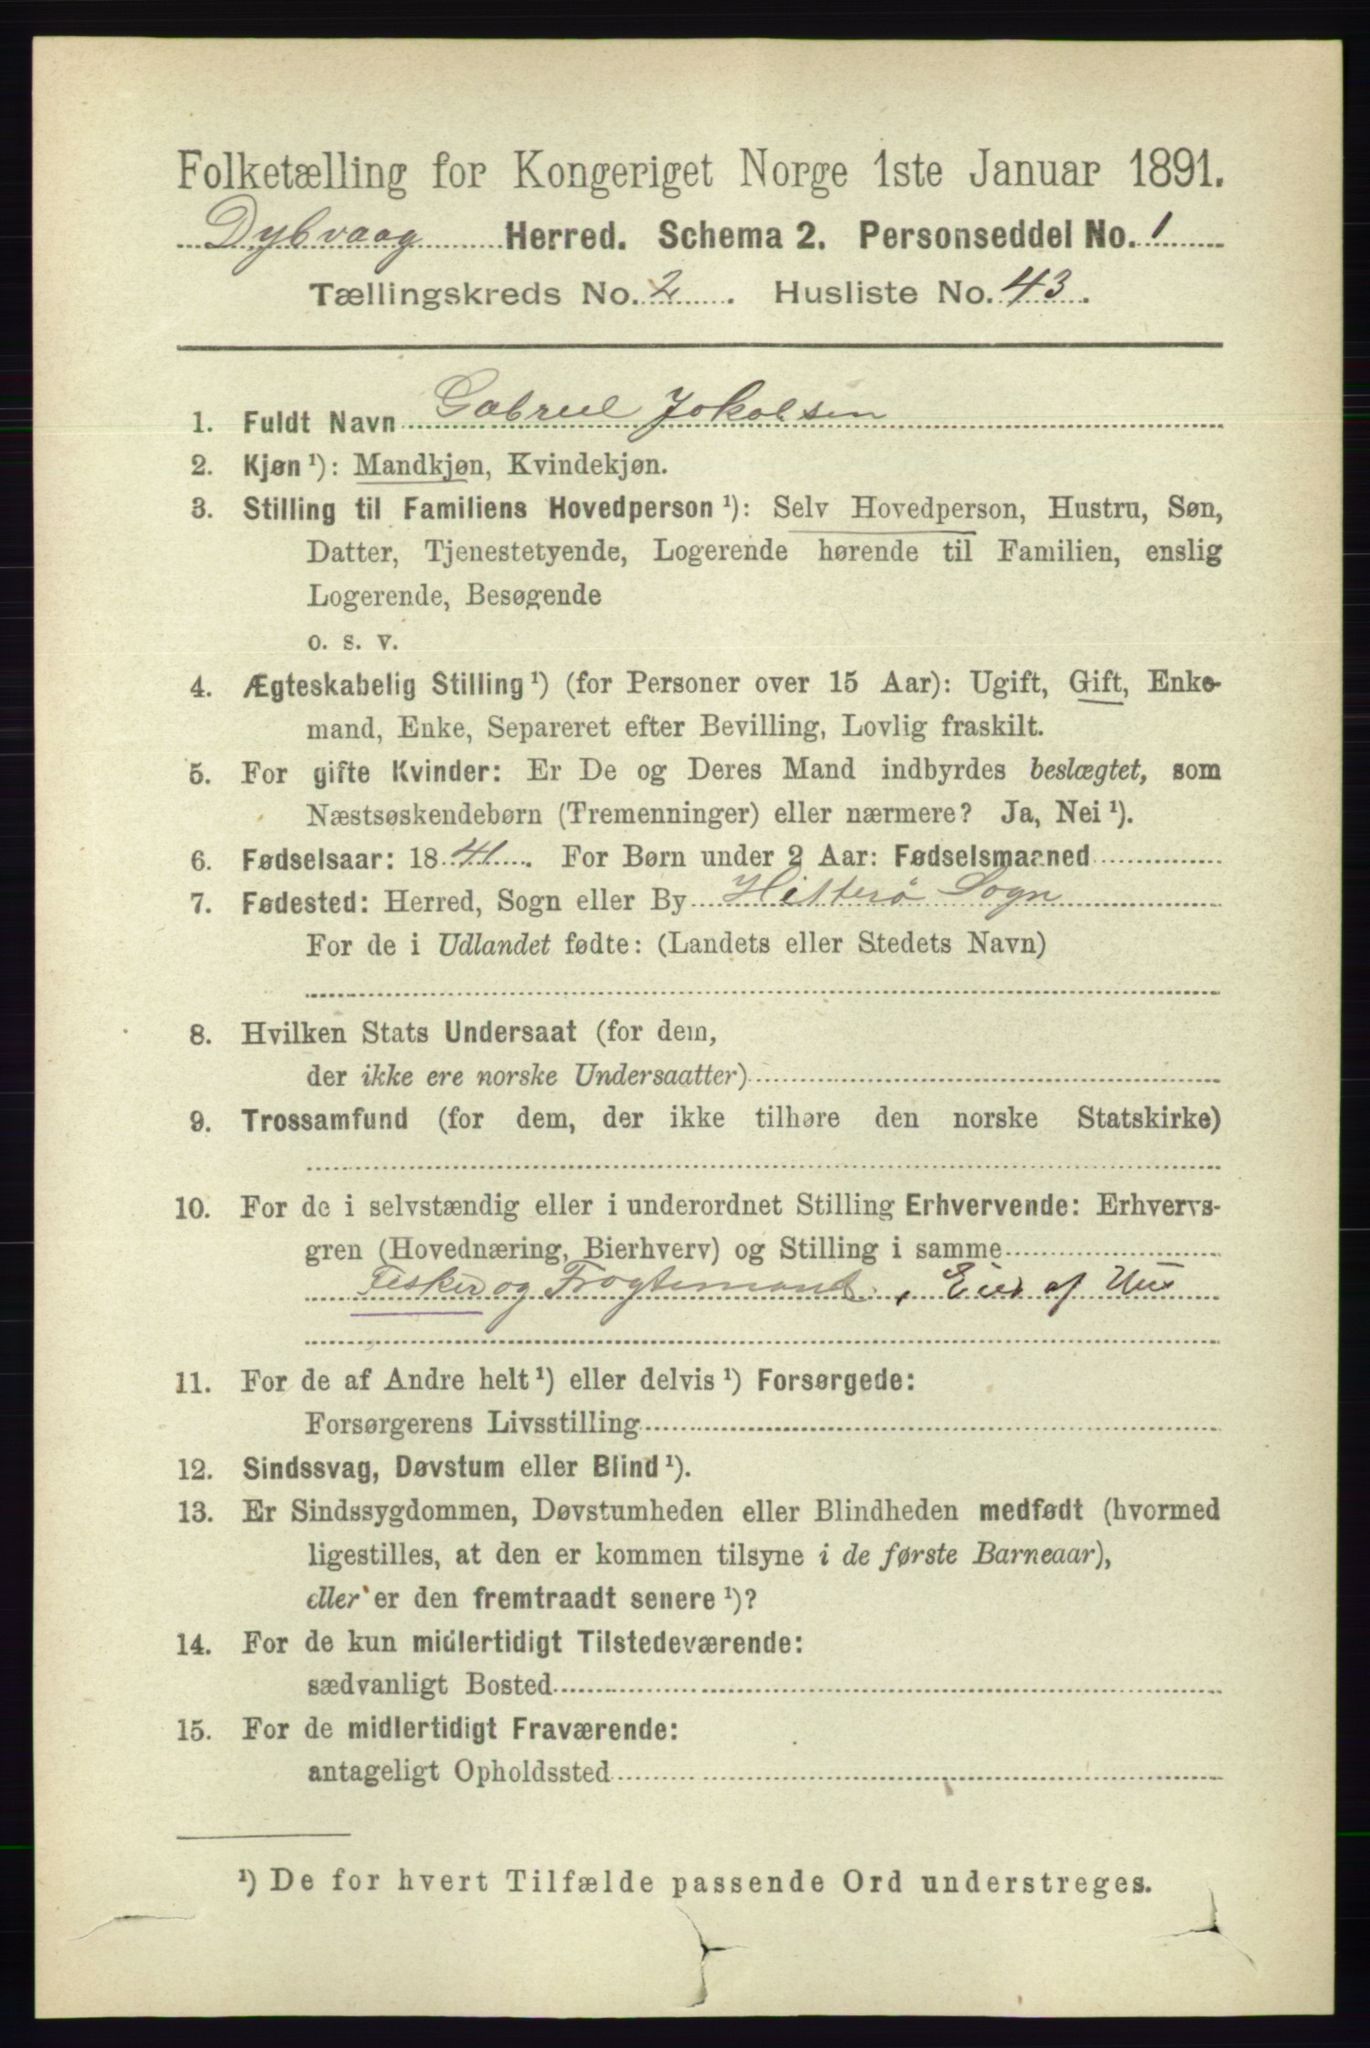 Folketælling for Kongeriget Norge 1ste Januar 1891.
Dybvaag Herred. Schema 2. Personseddel No. 1
Tællingskreds No. 2. Husliste No. 43.
1. Fuldt Navn Gabriel Jokobsen
2. Kjøn¹): Mandkjøn, Kvindekjøn.
3. Stilling til Familiens Hovedperson¹): Selv Hovedperson, Hustru, Søn,
Datter, Tjenestetyende, Logerende hørende til Familien, enslig
Logerende, Besøgende
o. s. v.
4. Ægteskabelig Stilling¹) (for Personer over 15 Aar): Ugift, Gift, Enke-
mand, Enke, Separeret efter Bevilling, Lovlig fraskilt.
5. For gifte Kvinder: Er De og Deres Mand indbyrdes beslægtet, som
Næstsøskendebørn (Tremenninger) eller nærmere? Ja, Nei¹).
6. Fødselsaar: 1841. For Børn under 2 Aar: Fødselsmaaned
7. Fødested: Herred, Sogn eller By Hitterø Sogn
For de i Udlandet fødte: (Landets eller Stedets Navn)
8. Hvilken Stats Undersaat (for dem,
der ikke ere norske Undersaatter)
9. Trossamfund (for dem, der ikke tilhøre den norske Statskirke)
10. For de i selvstændig eller i underordnet Stilling Erhvervende: Erhvervs-
gren (Hovednæring, Bierhverv) og Stilling i samme
Fisker og Frogtemand, Eier af Hus
11. For de af Andre helt¹) eller delvis¹) Forsørgede:
Forsørgerens Livsstilling
12. Sindssvag, Døvstum eller Blind¹).
13. Er Sindssygdommen, Døvstumheden eller Blindheden medfødt (hvormed
ligestilles, at den er kommen tilsyne i de første Barneaar),
eller er den fremtraadt senere¹)?
14. For de kun midlertidigt Tilstedeværende:
sædvanligt Bosted
15. For de midlertidigt Fraværende:
antageligt Opholdssted
¹) De for hvert Tilfælde passende Ord understreges.